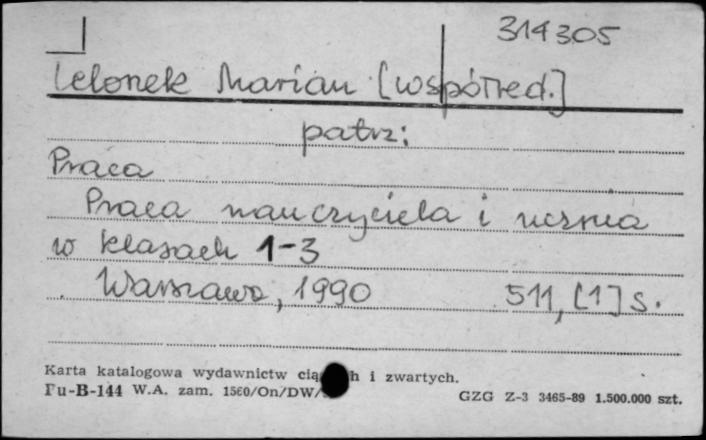 314305
Lelonek Marian [współred.]
patrz:
Praca
Praca nauczyciela i ucznia
w klasach 1-3
Warszawa, 1990 511, [1] s.
Karta katalogowa wydawnictw i zwartych.
Pu-B-144 W.A. zam. 1560/On/DW/
GZG Z-3 3465-89 1.500.000 szt.